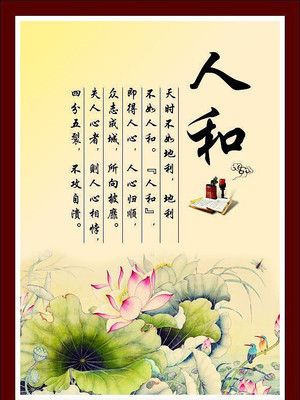 人和
天时不如地利，地利
不如人和。『人和』，
即得人心，人心归顺，
众志成城，所向披靡。
失人心者，则人心相悖，
四分五裂，不攻自溃。